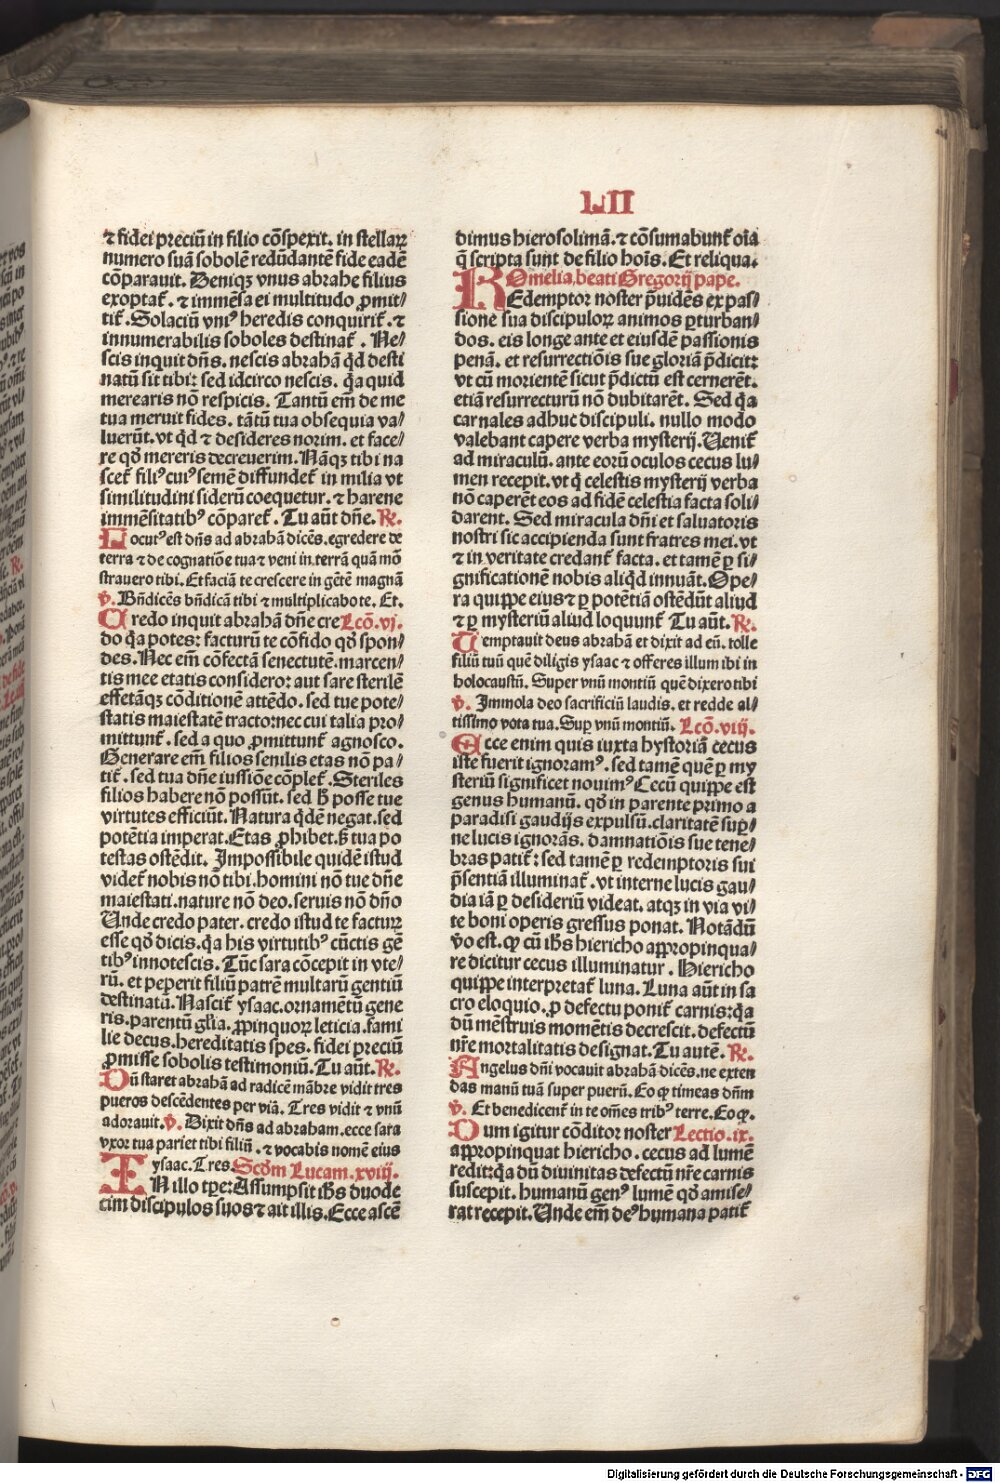 LII
⁊ fidei preciū in filio cōspexit. in stellaꝝ
numero suā sobolē redūdantē fide eadē
cōparauit. Deniqꝫ vnus abrahe filius
exoptat᷑. ⁊ immēsa ei multitudo ꝓmit⸗
tit᷑. Solaciū vniꝰ heredis conquirit᷑. ⁊
innumerabilis soboles destinat᷑. Ne⸗
scis inquit dn̄s. nescis abrahā qd̄ desti
natū sit tibi: sed idcirco nescis. q̄a quid
merearis nō respicis. Tantū em̄ de me
tua meruit fides. tātū tua obsequia va⸗
luerūt. vt qd̄ ⁊ desideres norim. et face⸗
re qd̄ mereris decreuerim. Nāqꝫ tibi na
scet᷑ filiꝰ cuiꝰ semē diffundet᷑ in milia vt
similitudini siderū coequetur. ⁊ harene
immēsitatibꝰ cōparet᷑. Tu aūt dn̄e. ℟.
Locutꝰ est dn̄s ad abrahā dicēs. egredere de
terra ⁊ de cognatiōe tua ⁊ veni in terrā quā mō
strauero tibi. Et faciā te crescere in gētē magnā
℣. Bn̄dicēs bn̄dicā tibi ⁊ multiplicabo te. Et.
Credo inquit abrahā dn̄e cre Lcō.vj.
do q̄a potes: facturū te cōfido qd̄ spon⸗
des. Nec em̄ cōfectā senectutē. marcen⸗
tis mee etatis considero: aut sare sterilē
effetāqꝫ cōditionē attēdo. sed tue pote⸗
statis maiestatē tracto: nec cui talia pro⸗
mittunt᷑. sed a quo ꝓmittunt᷑ agnosco.
Generare em̄ filios senilis etas nō pa⸗
tit᷑. sed tua dn̄e iussiōe cōplet᷑. Steriles
filios habere nō possūt. sed h̄ posse tue
virtutes efficiūt. Natura qd̄ē negat. sed
potētia imperat. Etas ꝓhibet. s̄ tua po
testas ostēdit. Impossibile quidē istud
videt᷑ nobis nō tibi. homini nō tue dn̄e
maiestati. nature nō deo. seruis nō dn̄o
Unde credo pater. credo istud te facturꝝ
esse qd̄ dicis. q̄a his virtutibꝰ cūctis gē
tibꝰ innotescis. Tūc sara cōcepit in vte⸗
rū. et peperit filiū patrē multarū gentiū
destinatū. Nascit᷑ ysaac. ornamētū gene
ris. parentū gl̄ia. ꝓpinquoꝝ leticia. fami
lie decus. hereditatis spes. fidei preciū
ꝓmisse sobolis testimoniū. Tu aūt. ℟.
Dū staret abrahā ad radicē mābre vidit tres
pueros descēdentes per viā. Tres vidit ⁊ vnū
adorauit. ℣. Dixit dn̄s ad abraham. ecce sara
vxor tua pariet tibi filiū. ⁊ vocabis nomē eius
ysaac. Tres Scd̄m Lucam.xviij.
IN illo tp̄e: Assumpsit ih̄s duode
cim discipulos suos ⁊ ait illis. Ecce ascē
dimus hierosolimā. ⁊ cōsumabunt᷑ oīa
q̄ scripta sunt de filio hoīs. Et reliqua.
Omelia beati Gregorij pape.
REdemptor noster p̄uidēs ex pas⸗
sione sua discipuloꝝ animos ꝑturban⸗
dos. eis longe ante et eiusdē passionis
penā. et resurrectiōis sue gloriā p̄dicit:
vt cū morientē sicut p̄dictū est cernerēt.
etiā resurrecturū nō dubitarēt. Sed q̄a
carnales adhuc discipuli. nullo modo
valebant capere verba mysterij. Uenit᷑
ad miraculū. ante eorū oculos cecus lu⸗
men recepit. vt q̄ celestis mysterij verba
nō caperēt eos ad fidē celestia facta soli⸗
darent. Sed miracula dn̄i et saluatoris
nostri sic accipienda sunt fratres mei. vt
⁊ in veritate credant᷑ facta. et tamē ꝑ si⸗
gnificationē nobis aliqd̄ innuāt. Ope⸗
ra quippe eius ⁊ ꝑ potētiā ostēdūt aliud
⁊ ꝑ mysteriū aliud loquunt᷑ Tu aūt. ℟.
Temptauit deus abrahā et dixit ad eū. tolle
filiū tuū quē diligis ysaac ⁊ offeres illum ibi in
holocaustū. Super vnū montiū quē dixero tibi
℣. Immola deo sacrificiū laudis. et redde al⸗
tissimo vota tua. Sup̲ vnū montiū. Lcō.viij.
Ecce enim quis iuxta hystoriā cecus
iste fuerit ignoramꝰ. sed tamē quē ꝑ my
steriū significet nouimꝰ Cecū quippe est
genus humanū. qd̄ in parente primo a
paradisi gaudijs expulsū. claritatē sup̲⸗
ne lucis ignorās. damnatiōis sue tene⸗
bras patit᷑: sed tamē ꝑ redemptoris sui
p̄sentiā illuminat᷑. vt interne lucis gau⸗
dia iā ꝑ desideriū videat. atqꝫ in via vi⸗
te boni operis gressus ponat. Notādū
v̄o est. ꝙ cū ih̄s hiericho appropinqua⸗
re dicitur cecus illuminatur. Hiericho
quippe interpretat᷑ luna. Luna aūt in sa
cro eloquio. ꝓ defectu ponit᷑ carnis: q̄a
dū mēstruis momētis decrescit. defectū
nr̄e mortalitatis designat. Tu autē. ℟.
Angelus dn̄i vocauit abrahā dicēs. ne exten
das manū tuā super puerū. Eo ꝙ timeas dn̄m
℣. Et benedicent᷑ in te om̄es tribꝰ terre. Eo ꝙ.
Dum igitur cōditor noster Lectio.ix.
appropinquat hiericho. cecus ad lumē
redit: q̄a dū diuinitas defectū nr̄e carnis
suscepit. humanū genꝰ lumē qd̄ amise⸗
rat recepit. Unde em̄ deꝰ humana patit᷑
Digitalisierung gefördert durch die Deutsche Forschungsgemeinschaft - DFG